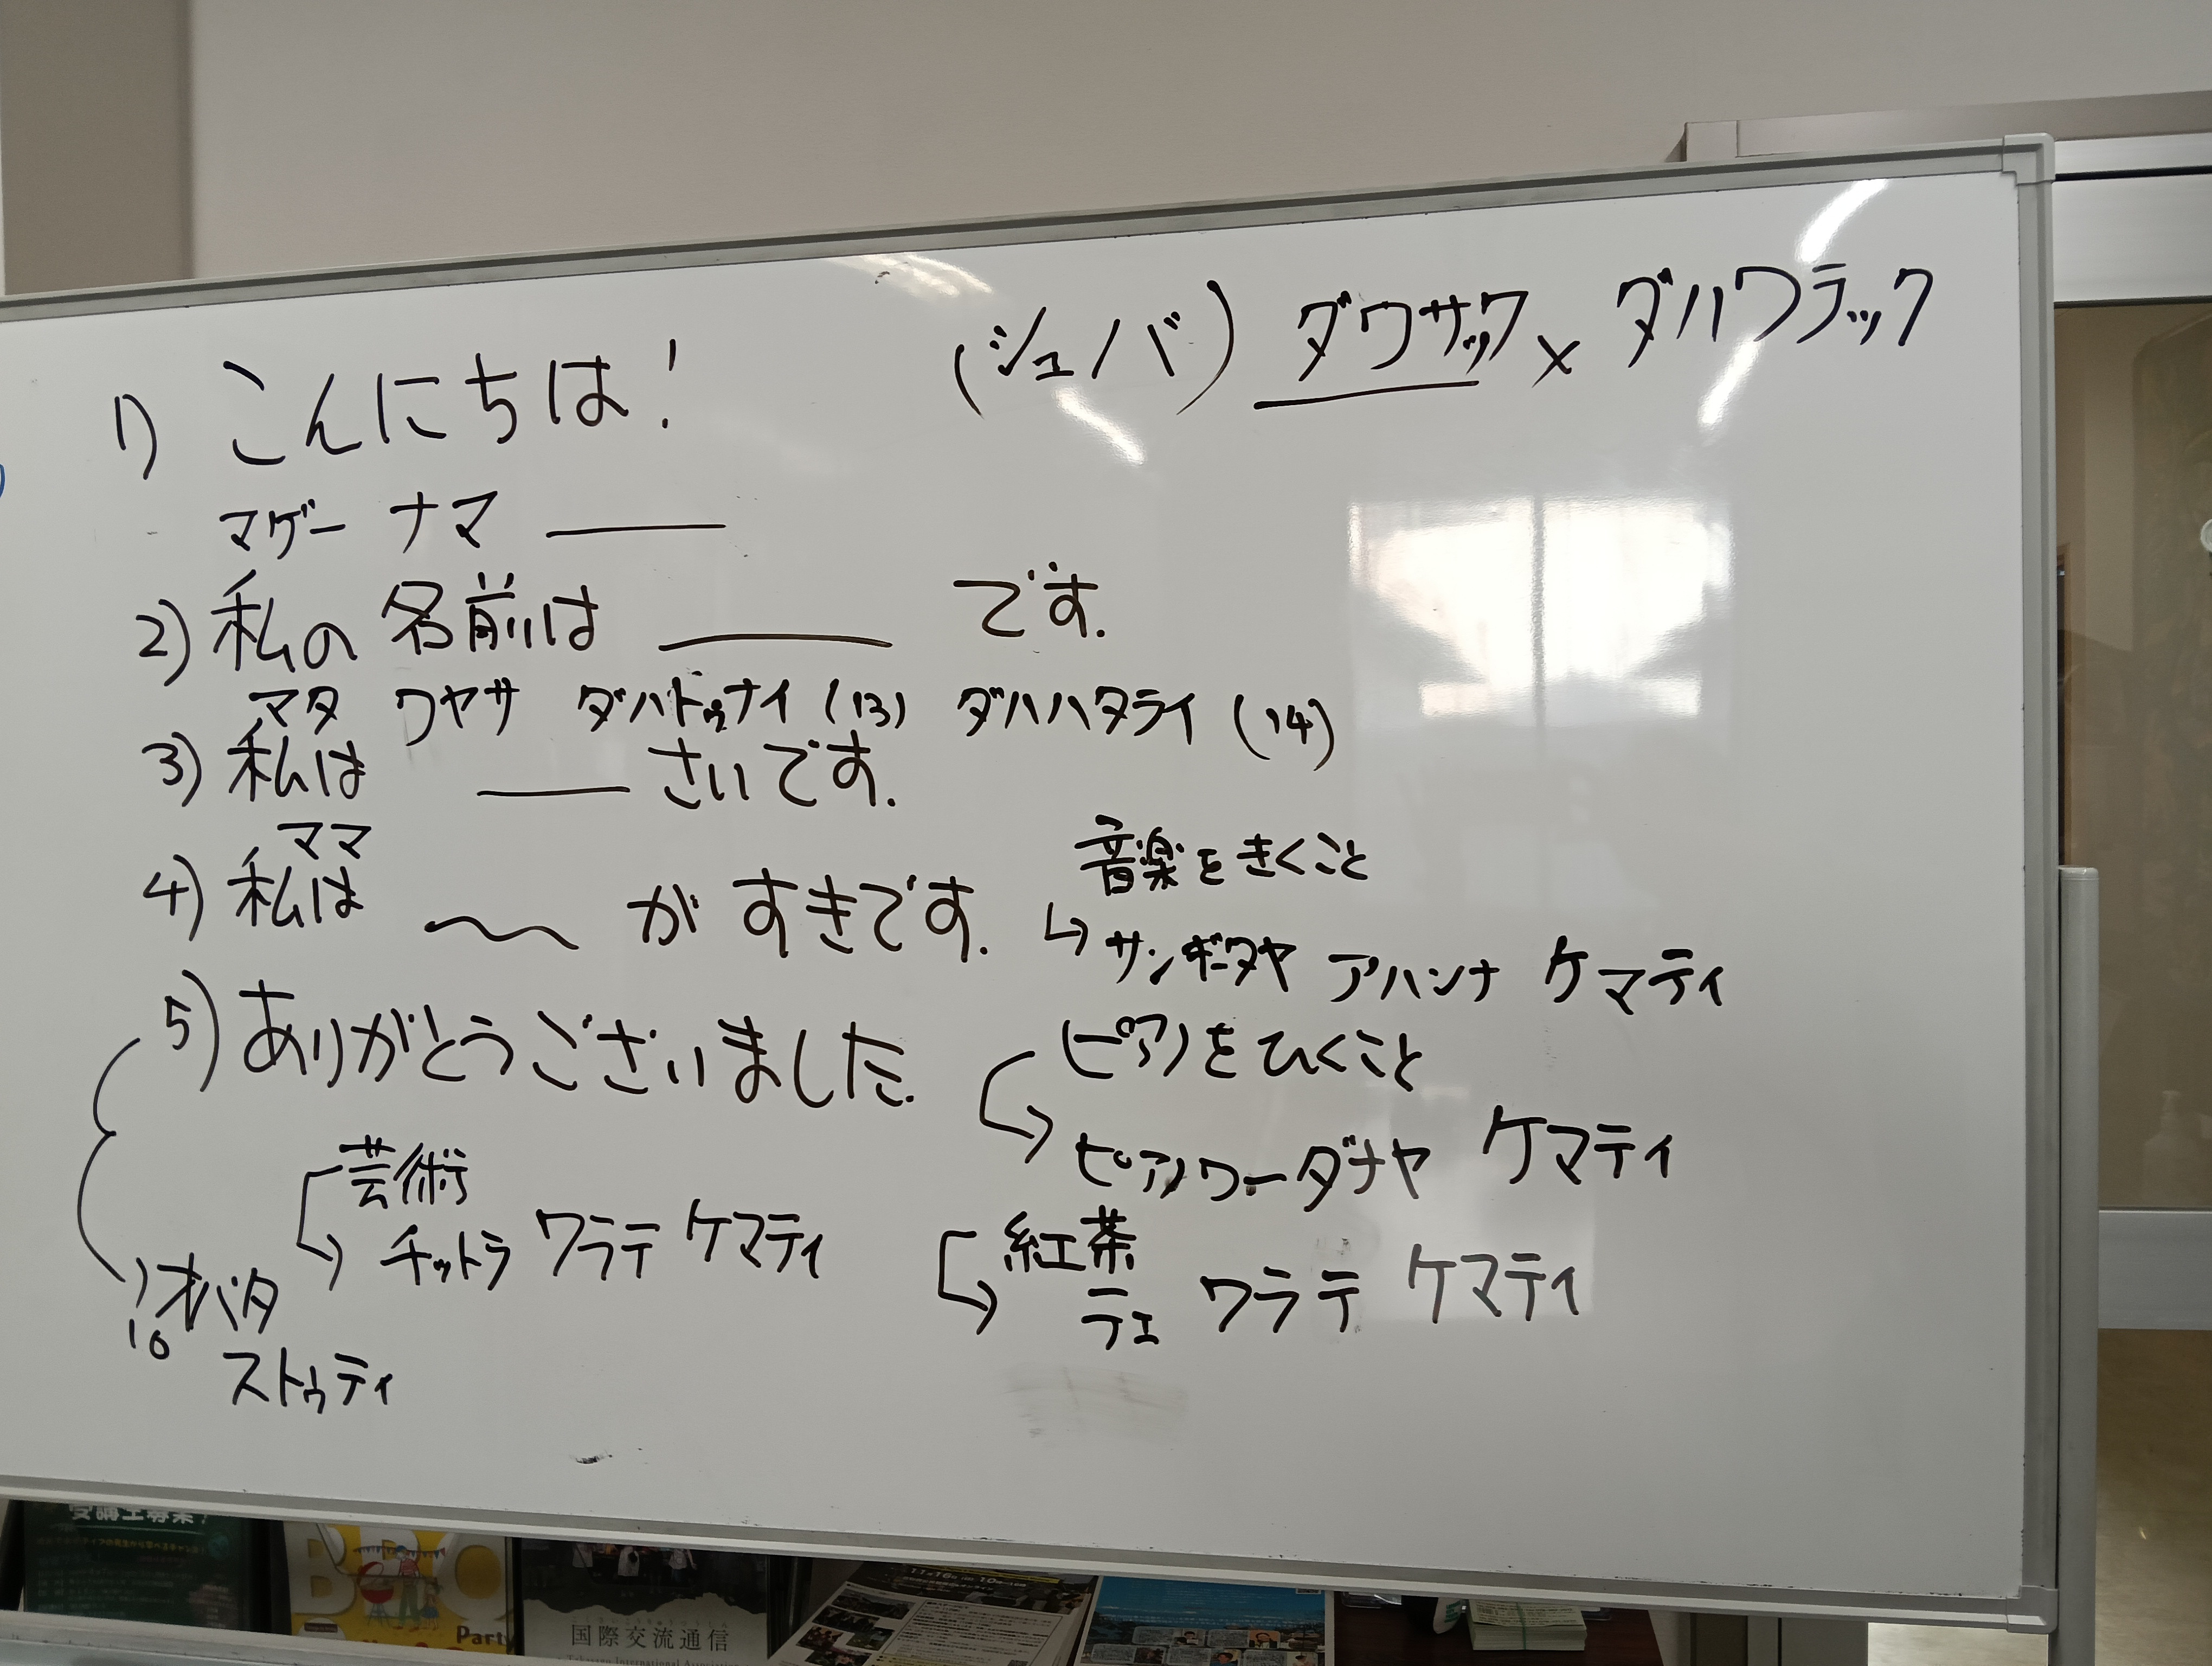 1) こんにちは! (シュバ) ダワサックx ダハワラック
マゲー ナマ ＿＿
2) 私の 名前は ＿＿ です.
マタ ワヤサ ダハトゥナイ (13) ダハハタライ (14)
3) 私は ＿＿ さいです.
ママ
4) 私は 〜 が すきです.
音楽をきくこと
↳ サンギータヤ アハンナ ケマティ
5) ありがとうございました.
(ピアノ)をひくこと
ピアノワーダナヤ ケマティ
芸術
チットラ ワラテ ケマティ
紅茶
テェ ワラテ ケマティ
オバタ
ストゥティ
受講生募集!
BBQ
Party
国際交流通信